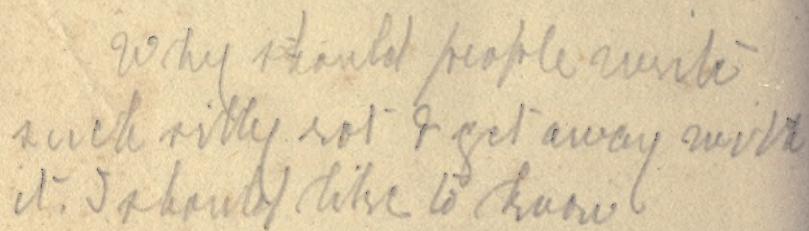 Why should people write
such silly rot & get away with
it. I should like to know